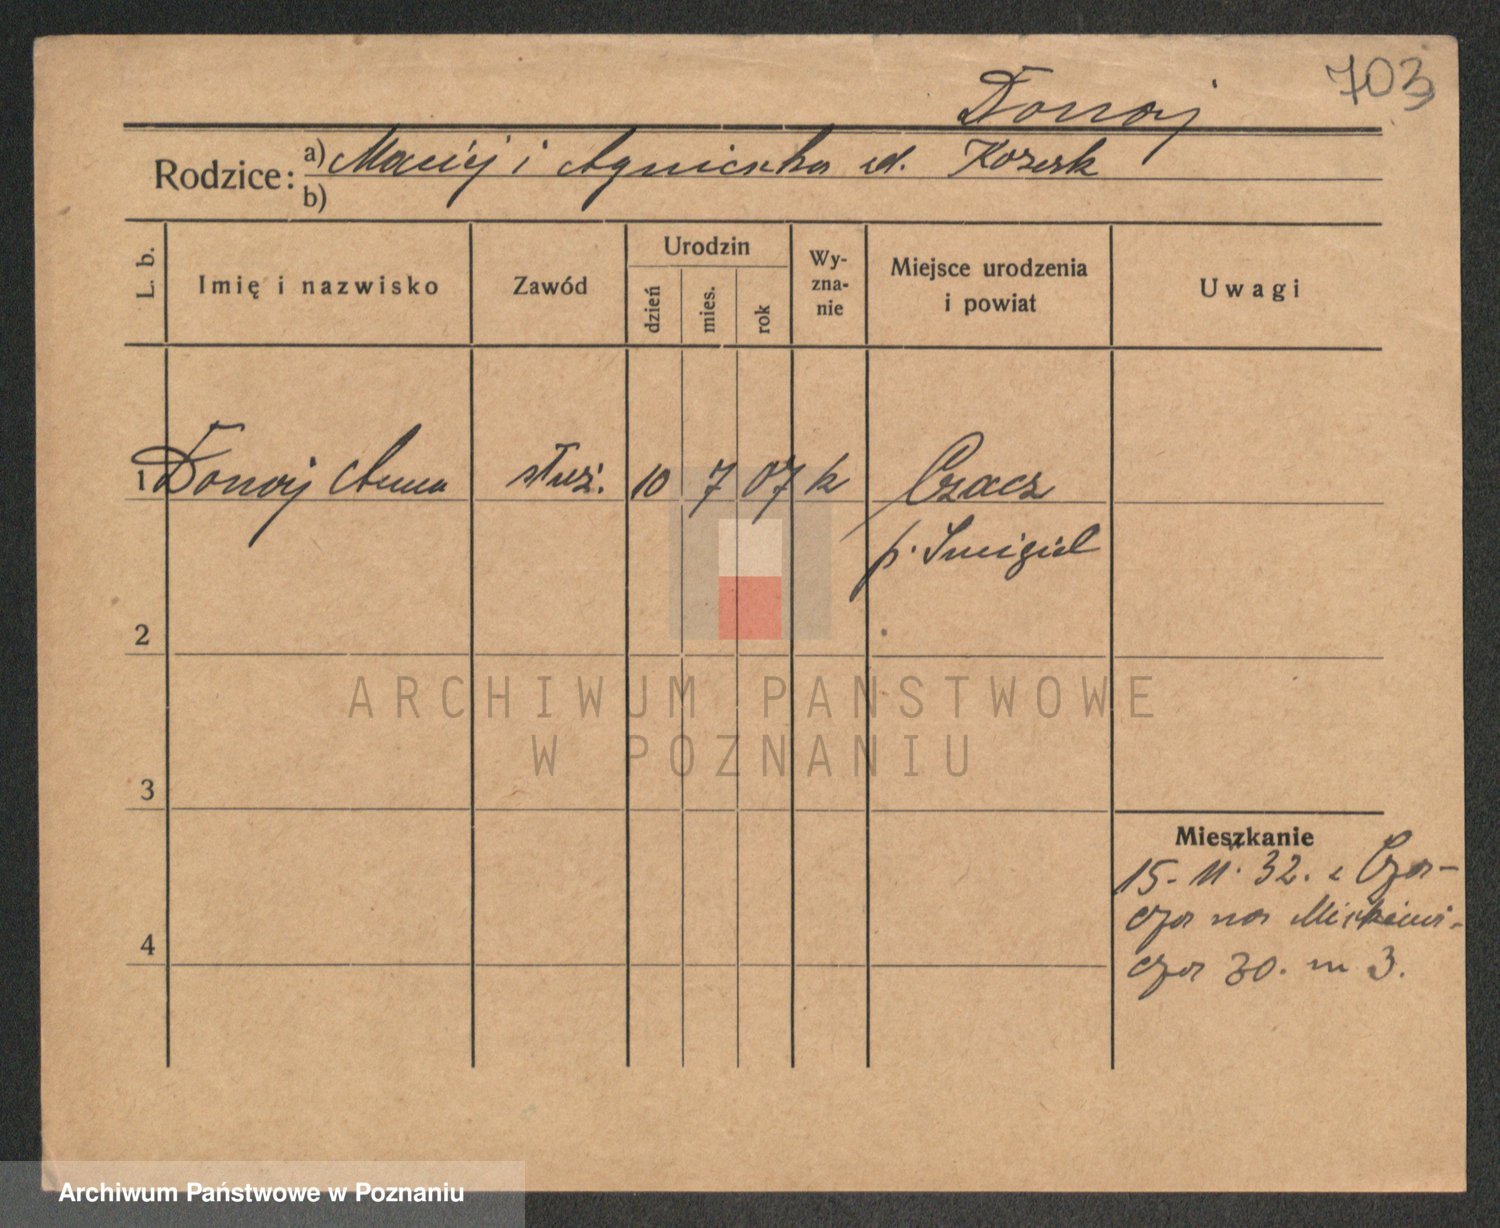 703
Donaj
Rodzice: a) Maciej i Agnieszka zd.
b)
L. b.
Imię i nazwisko
Zawód
Urodzin
dzień
mies.
rok
Wy-
zna-
nie
Miejsce urodzenia
i powiat
Uwagi
1 Donaj Anna służ. 10 7 07 k Czacz
p. Śmigiel
2
3
4
Mieszkanie
15. 11. 32. z Cza-
cza na Mickiewi-
cza 30. m 3.
ARCHIWUM PAŃSTWOWE
W POZNANIU
Archiwum Państwowe w Poznaniu